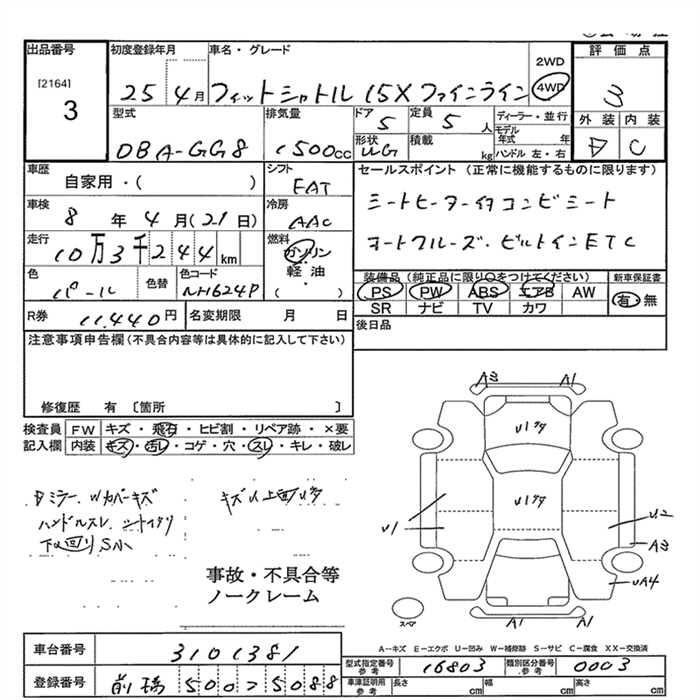 出品番号
[2164]
3
初度登録年月
25 4月
車名・グレード
フィットシャトル 15X ファインライン
2WD
4WD
評価点
3
型式
DBA-GG8
排気量
1500cc
ドア
5
定員
5人
ディーラー・並行
モデル年式 年
ハンドル 左・右
形状
UG
積載
kg
外装 内装
D C
車歴
自家用・( )
シフト
FAT
セールスポイント (正常に機能するものに限ります)
シートヒーター付コンビシート
オートクルーズ・ビルトインETC
車検
8年 4月(21日)
冷房
AAC
走行
10万3千244km
燃料
ガソリン
軽油
( )
色
パール
色替
色コード
NH624P
装備品 (純正品に限り○をつけてください)
PS PW ABS エアB AW
SR ナビ TV カワ
新車保証書
有・無
R券 11,440円
名変期限 月 日
後日品
注意事項申告欄(不具合内容等は具体的に記入して下さい)
修復歴 有〔箇所 〕
検査員記入欄
FW キズ・飛石・ヒビ割・リペア跡・×要
内装 キズ・汚レ・コゲ・穴・スレ・キレ・破レ
Dミラー、Wカバーキズ
ハンドルスレ シートイタミ
下回りS小
事故・不具合等
ノークレーム
A3 A1
U1
U2
A3
UA4
A1 A1
スペア
A-キズ E-エクボ U-凹み W-補修跡 S-サビ C-腐食 XX-交換済
車台番号 3101381
型式指定番号 参考 16803
類別区分番号 参考 0003
登録番号 前橋 500 5088
車庫証明用 参考 長さ cm 幅 cm 高さ cm